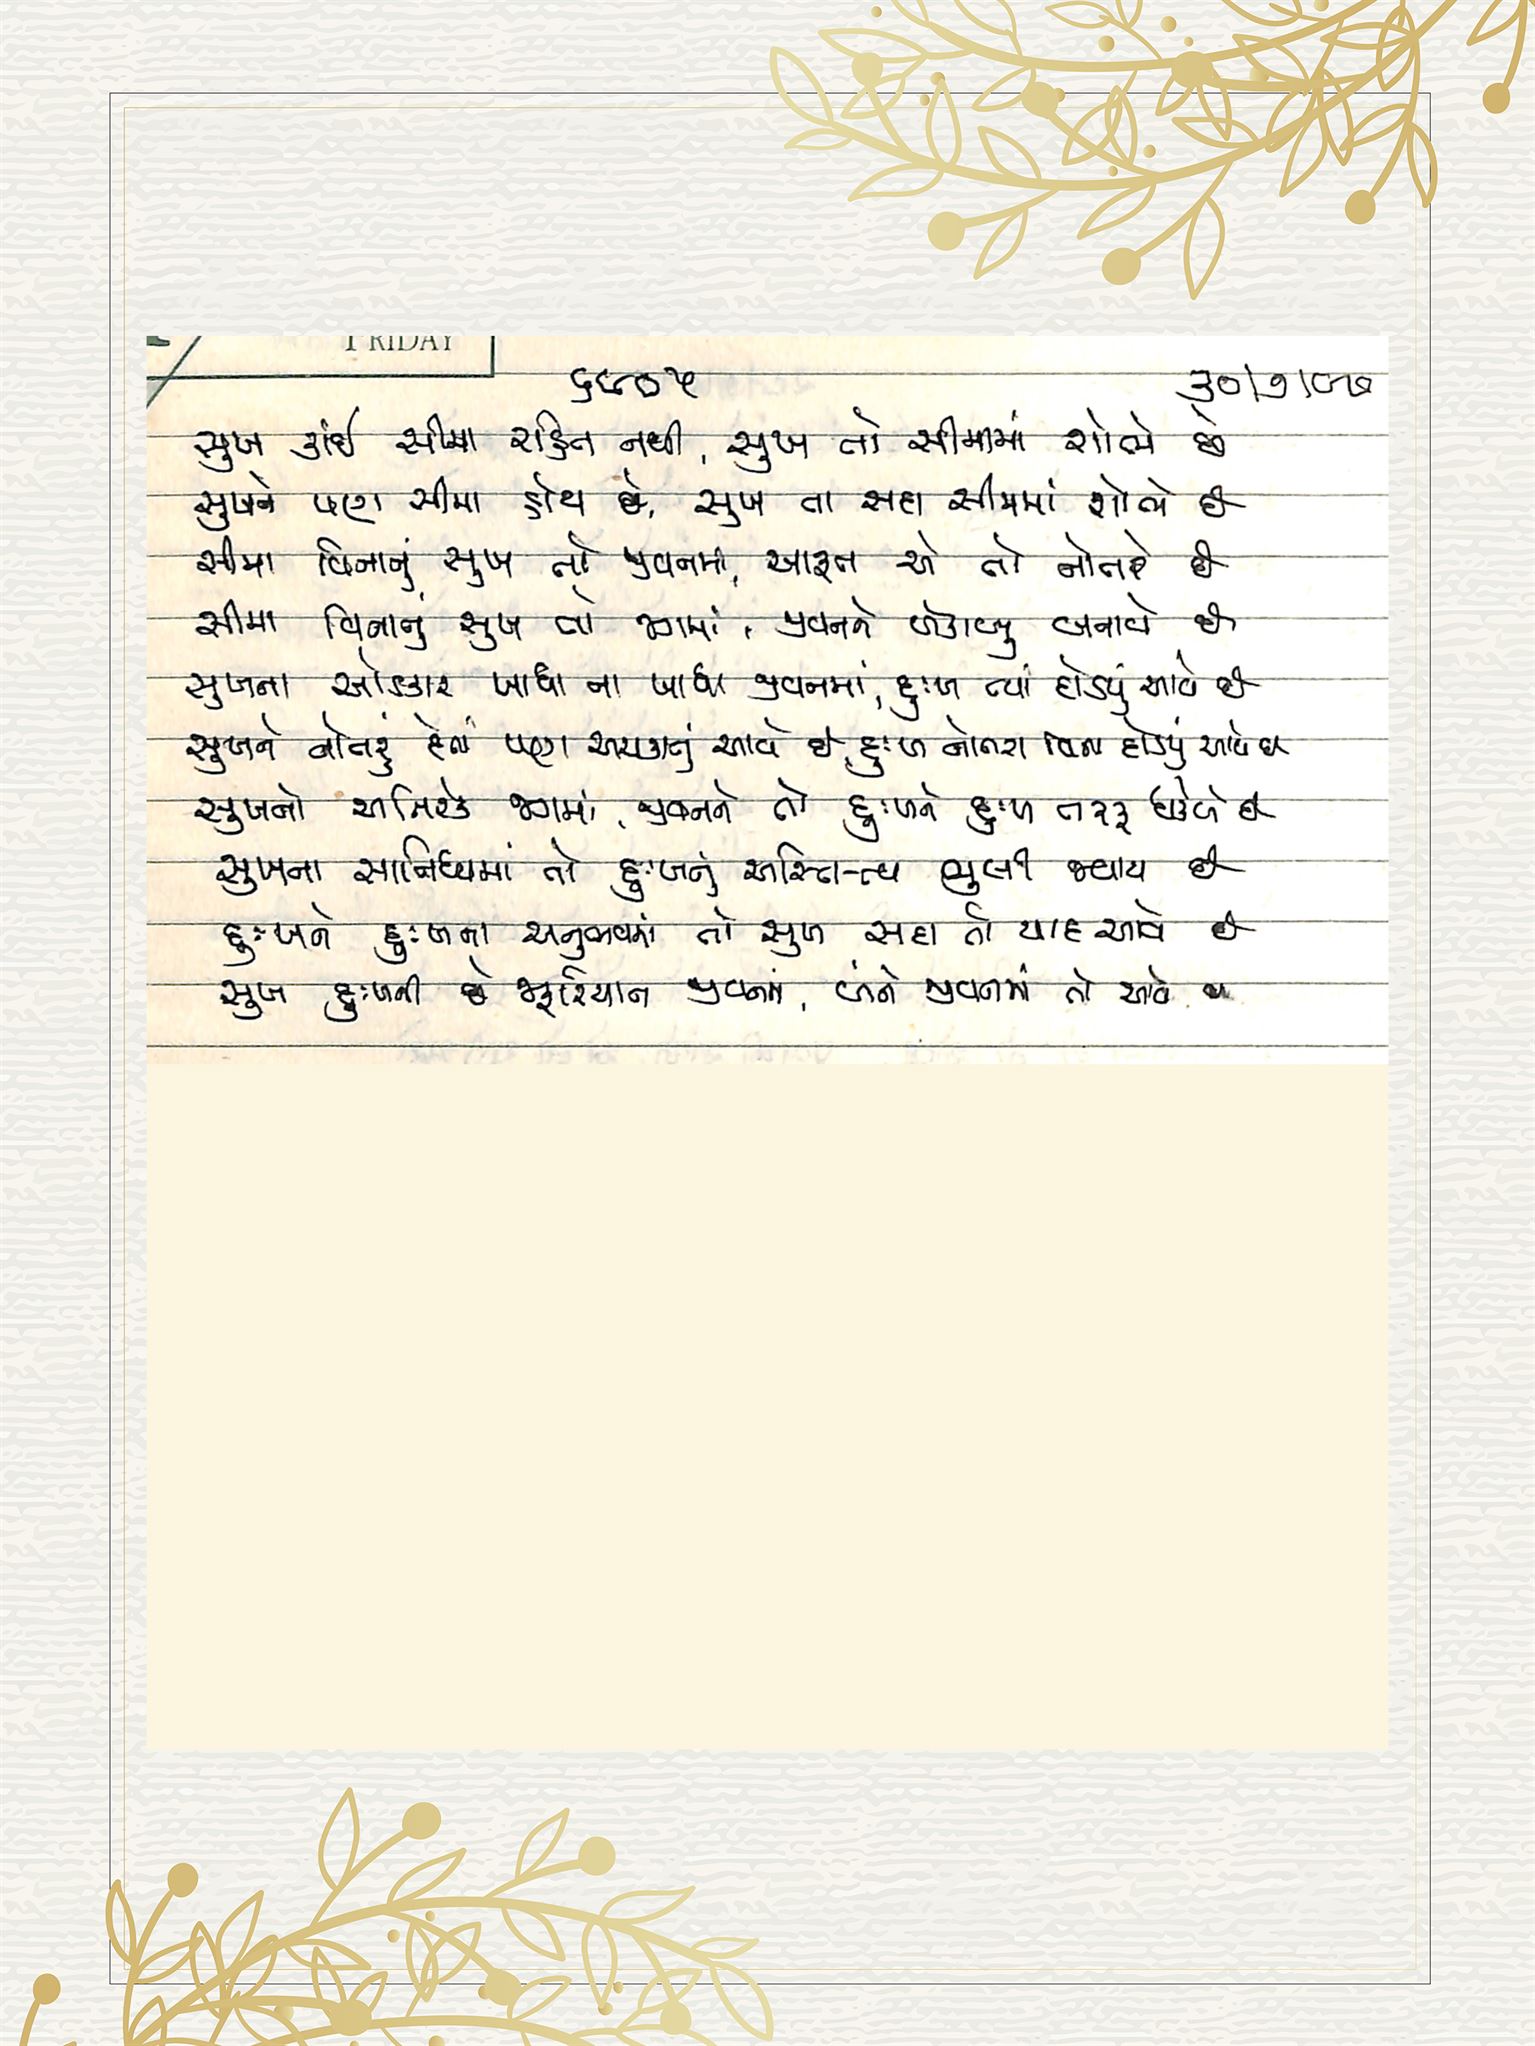 FRIDAY
૬૮૦૫ ૩૦/૧/૦૭
સુખ કાંઈ સીમા રહિત નથી, સુખ તો સીમામાં શોભે છે
સુખને પણ સીમા હોય છે, સુખ તો સદા સીમામાં શોભે છે
સીમા વિનાનું સુખ તો જીવનમાં, આફત એ તો નોતરે છે
સીમા વિનાનું સુખ તો જગમાં, જીવનને બનાવે છે
સુખના ઓડકાર ખાધા ના ખાધા જીવનમાં, દુઃખ ત્યાં દોડયું આવે છે
સુખને નોતરું દેતાં પણ અચકાતું આવે છે, દુઃખ નોતરા વિના દોડયું આવે છે
સુખનો અતિરેક જગમાં, જીવનને તો દુઃખને દુઃખ તરફ ધકેલે છે
સુખના સાનિધ્યમાં તો દુઃખનું અસ્તિત્વ ભુલી જવાય છે
દુઃખને દુઃખના અનુભવમાં તો સુખ સદા તો યાદ આવે છે
સુખ દુઃખની છે જીવનમાં, બંને જીવનમાં તો આવે છે